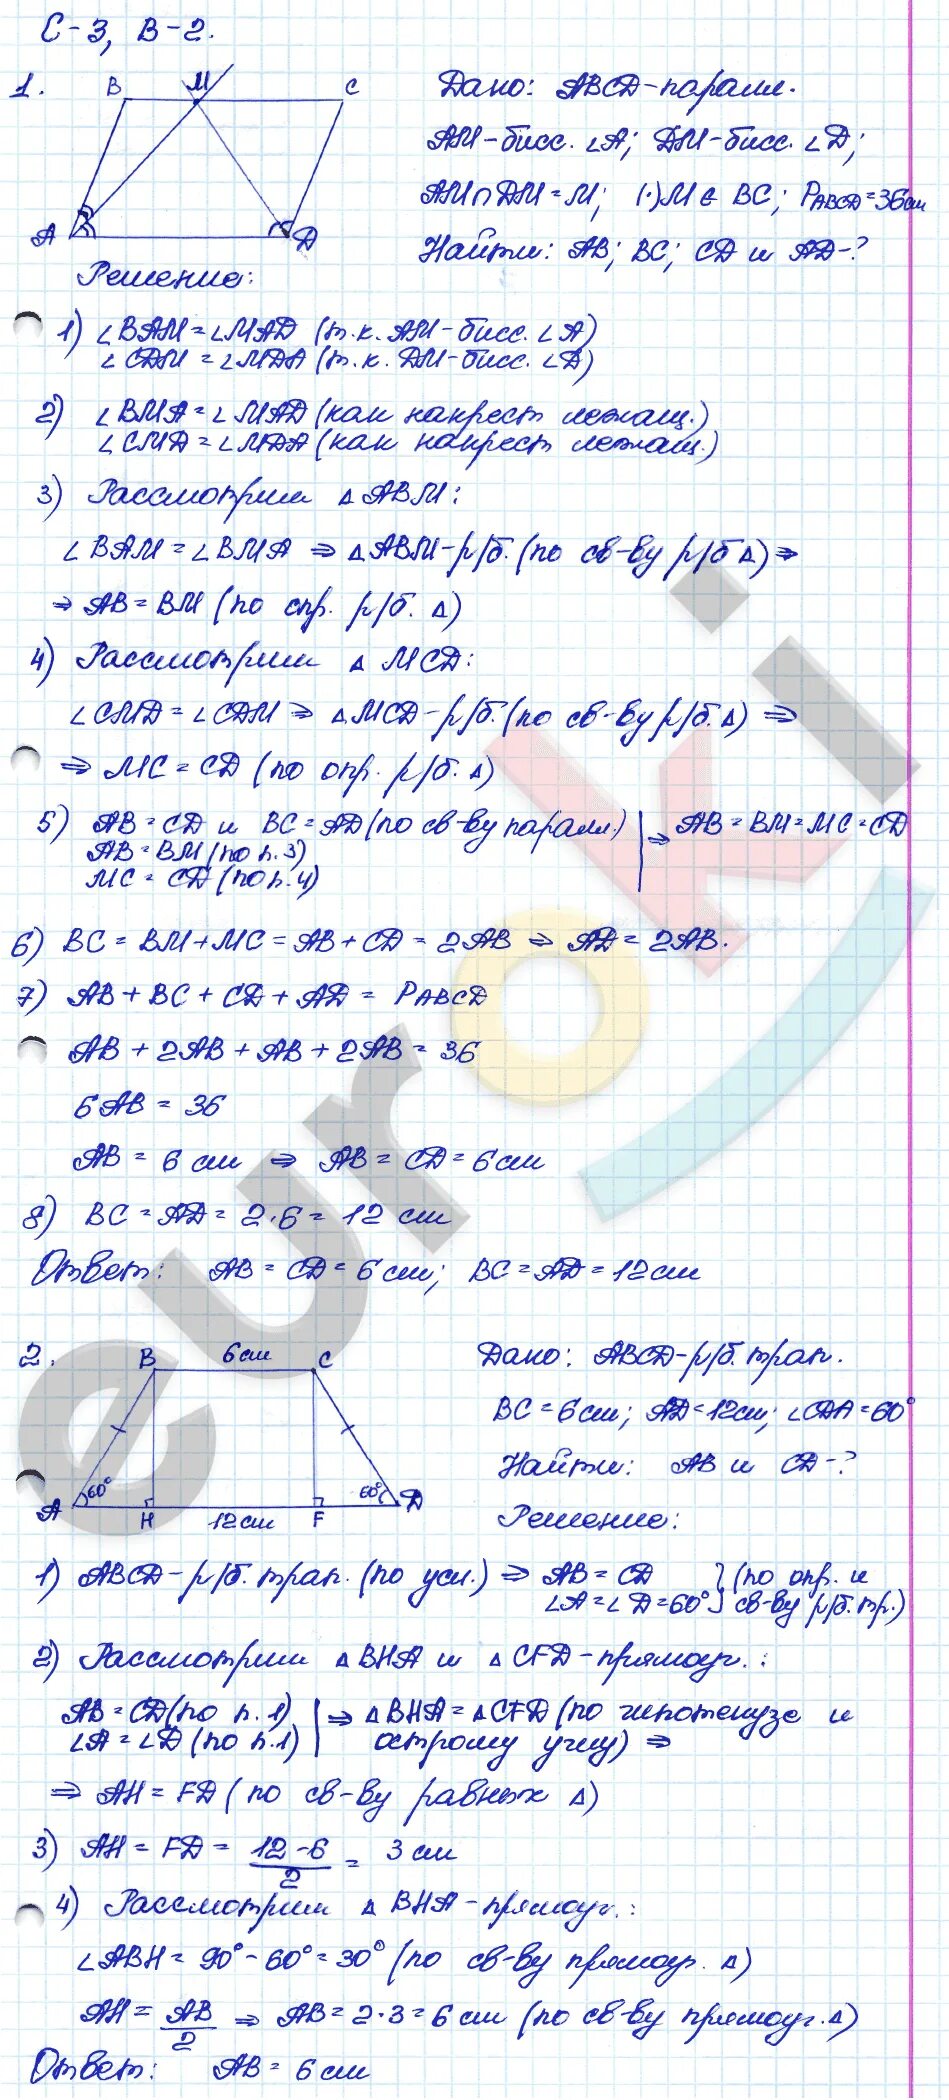 С-3, В-2.
1.
B M C
A D
Дано: ABCD-паралл.
AM-бисс. ∠A; DM-бисс. ∠D;
AM∩DM=M; (·)M∈BC; PABCD=36см
Найти: AB; BC; CD и AD-?
Решение:
1) ∠BAM=∠MAD (т.к. AM-бисс. ∠A)
∠CDM=∠MDA (т.к. DM-бисс. ∠D)
2) ∠BMA=∠MAD (как накрест лежащ.)
∠CMD=∠MDA (как накрест лежащ.)
3) Рассмотрим △ABM:
∠BAM=∠BMA ⇒ △ABM-р/б. (по св-ву р/б △) ⇒
⇒ AB=BM (по опр. р/б. △)
4) Рассмотрим △MCD:
∠CMD=∠CDM ⇒ △MCD-р/б. (по св-ву р/б. △) ⇒
⇒ MC=CD (по опр. р/б. △)
5) AB=CD и BC=AD (по св-ву паралл.) | ⇒ AB=BM=MC=CD
AB=BM (по п.3)
MC=CD (по п.4)
6) BC=BM+MC=AB+CD=2AB ⇒ AD=2AB.
7) AB+BC+CD+AD=PABCD
AB+2AB+AB+2AB=36
6AB=36
AB=6см ⇒ AB=CD=6см
8) BC=AD=2·6=12 см
Ответ: AB=CD=6см; BC=AD=12см
2.
B 6см C
60° 60°
A H 12см F D
Дано: ABCD-р/б. трап.
BC=6см; AD=12см; ∠CDA=60°
Найти: AB и CD-?
Решение:
1) ABCD-р/б. трап. (по усл.) ⇒ AB=CD } (по опр. и
∠A=∠D=60° } св-ву р/б. тр.)
2) Рассмотрим △BHA и △CFD-прямоуг.:
AB=CD (по п.1) | ⇒ △BHA=△CFD (по гипотенузе и
∠A=∠D (по п.1) | острому углу) ⇒
⇒ AH=FD (по св-ву равных △)
3) AH=FD= 12-6 / 2 = 3 см
4) Рассмотрим △BHA-прямоуг.:
∠ABH=90°-60°=30° (по св-ву прямоуг. △)
AH= AB / 2 ⇒ AB=2·3=6 см (по св-ву прямоуг. △)
Ответ: AB=6см
euroki